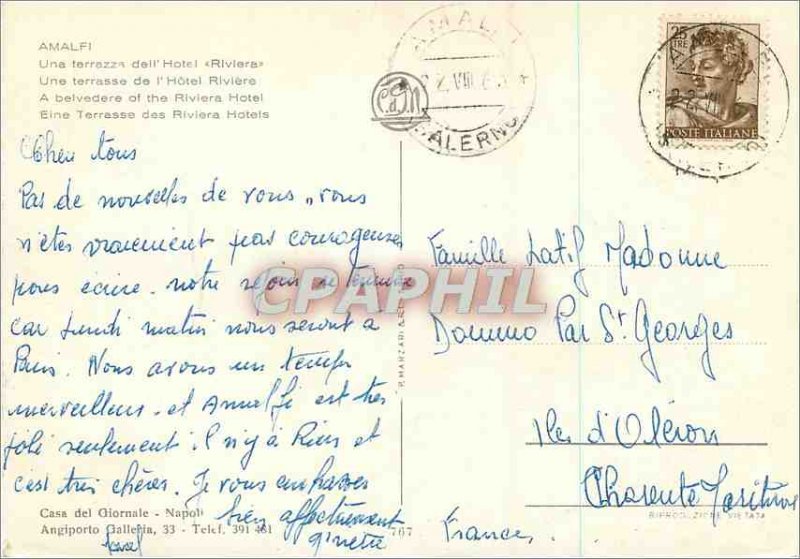 AMALFI
Una terrazza dell'Hotel «Riviera»
Une terrasse de l'Hôtel Rivière
A belvedere of the Riviera Hotel
Eine Terrasse des Riviera Hotels
AMALFI
SALERNO
25
LIRE
POSTE ITALIANE
Cher tous
Pas de nouvelles de vous, vous
n'êtes vraiement pas courageuses
pour écrire. notre séjour se termine
car lundi matin nous seront a
Paris. Nous avons un temps
merveilleux et Amalfi est très
joli seulement il n'y à Rien et
c'est très chères. Je vous embrasse
bien affectueusement
CPAPHIL
Famille Latif Madonne
Domino Par St Georges
Iles d'Oléron
Charente Maritime
France
Casa del Giornale - Napoli
Angiporto Galleria, 33 - Telef. 391 481
767
RIPRODUZIONE VIETATA